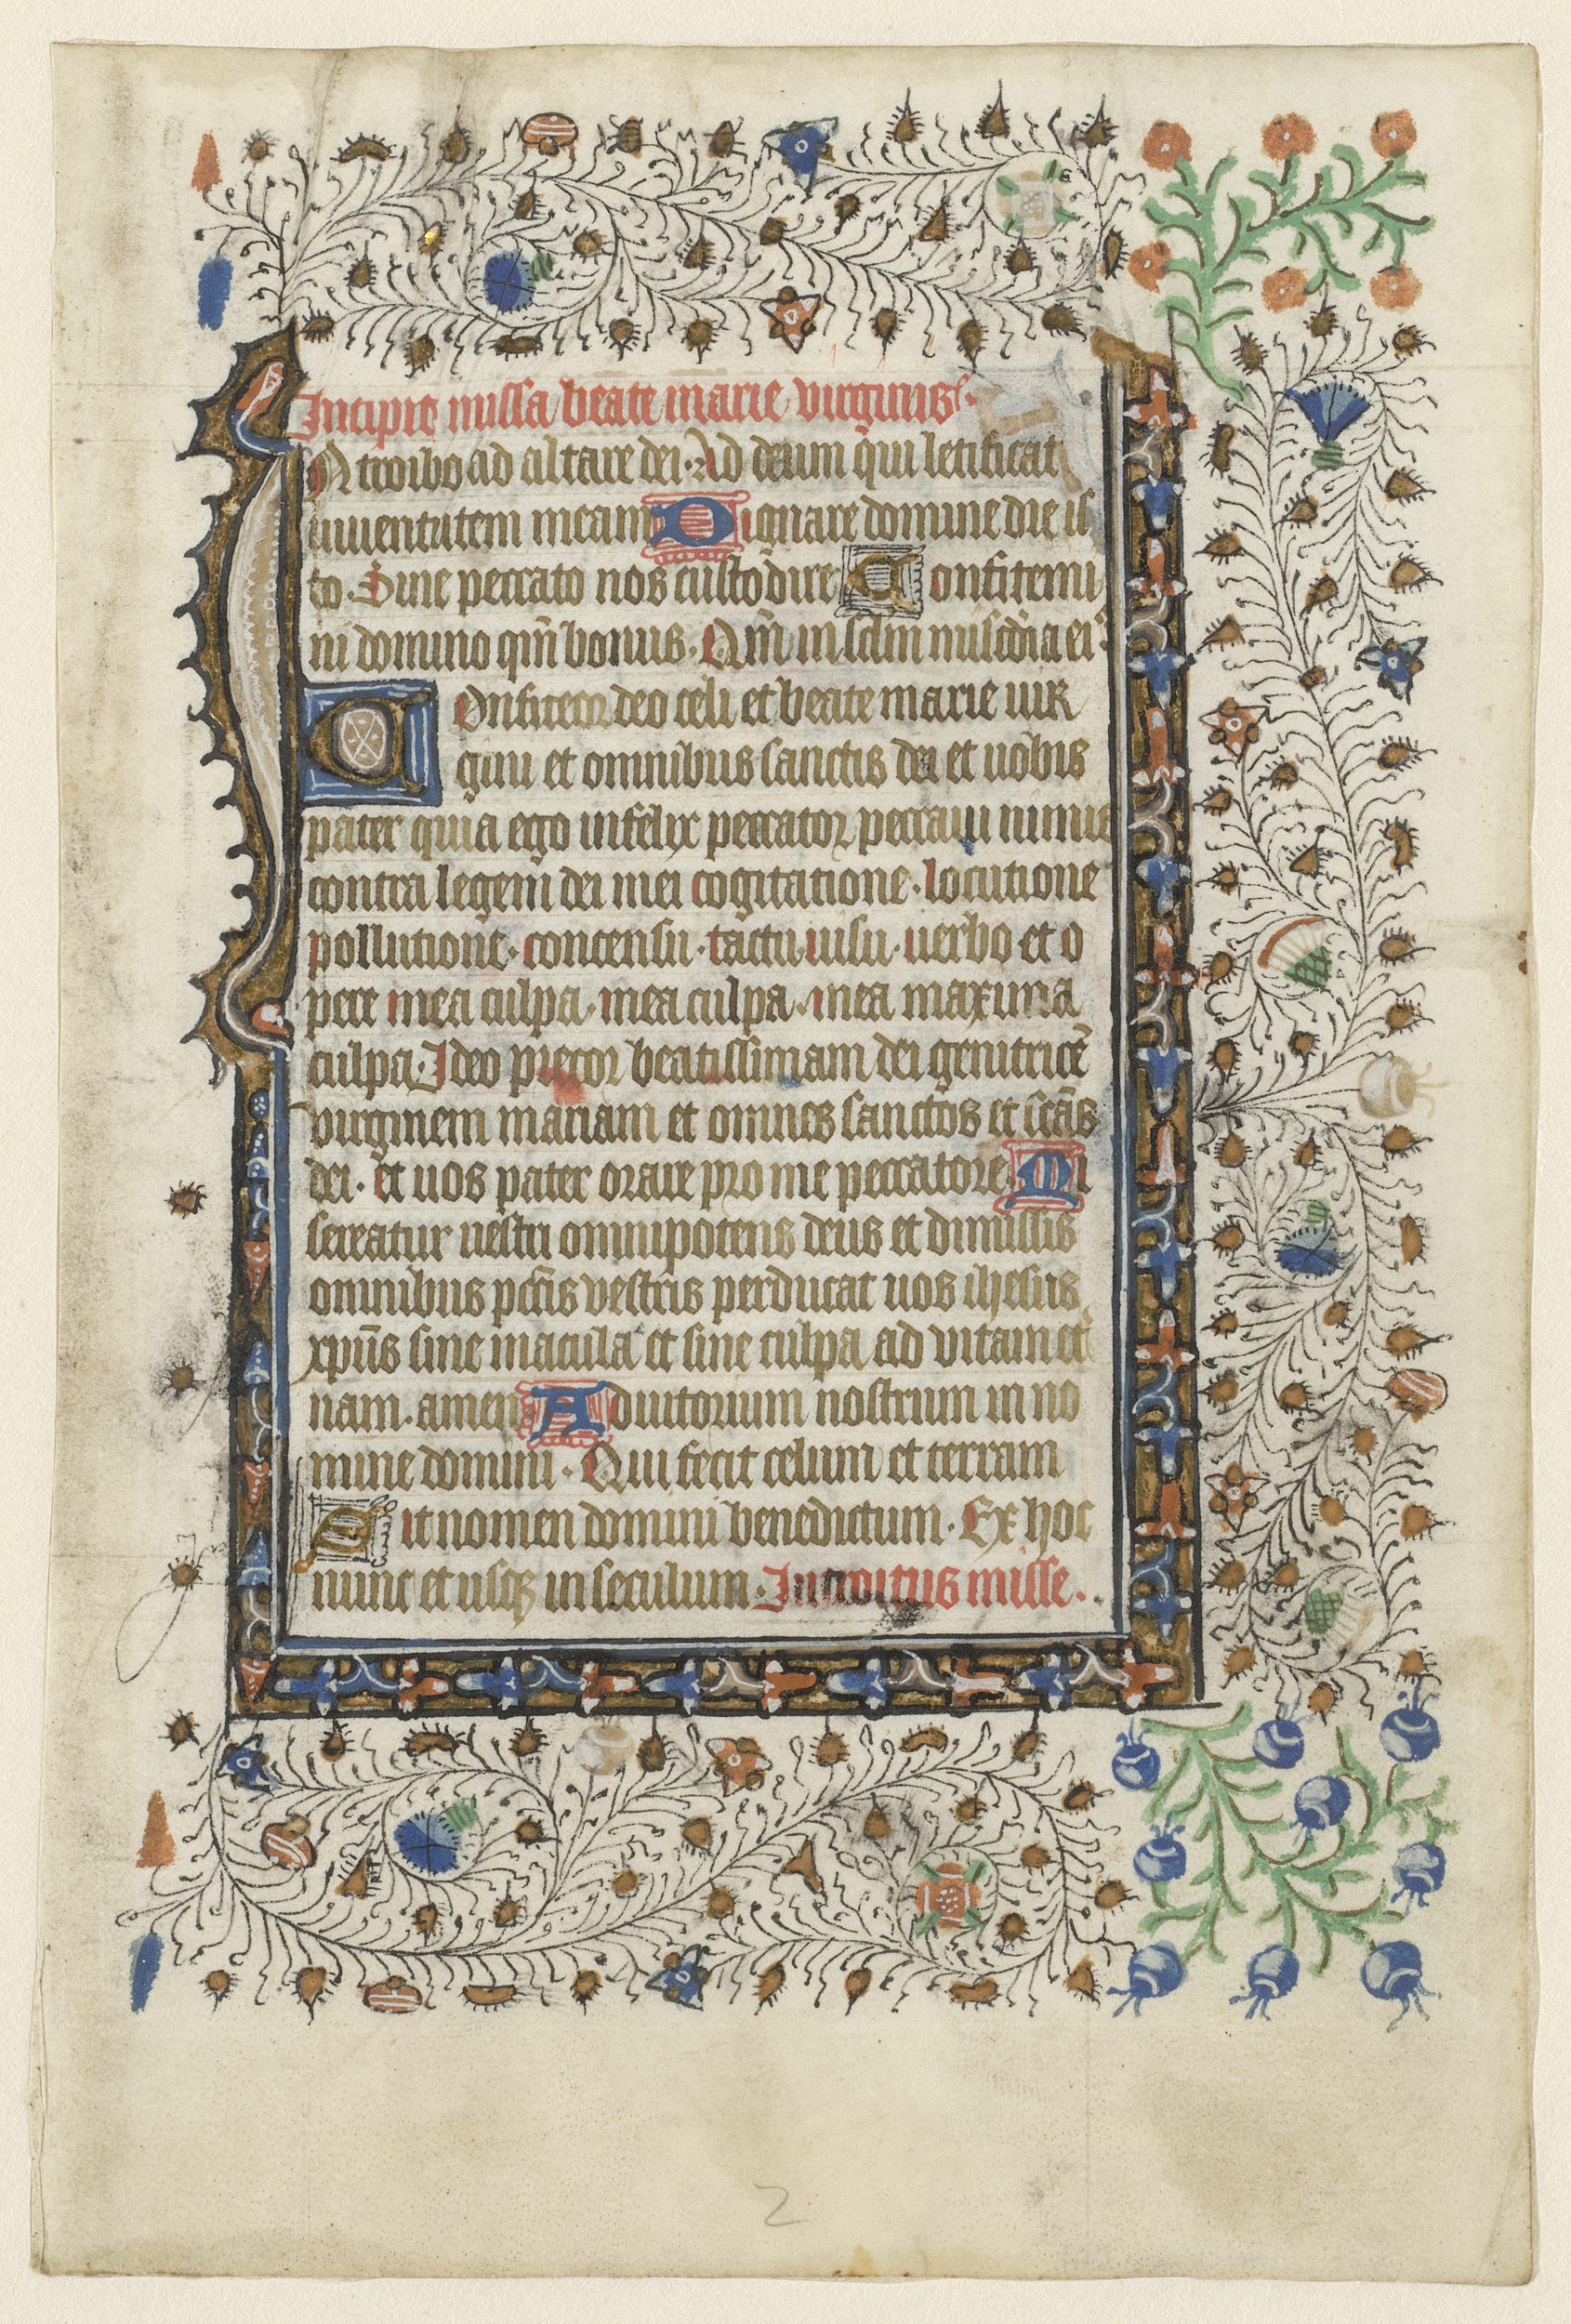 Incipit missa beate marie virginis
INtroibo ad altare dei · Ad deum qui letificat
iuuentutem meam Dignare domine die is
to · Sine peccato nos custodire Confitemi
ni domino qm̄ bonus · Qm̄ in sc̄lm misc̄dia ei⁹
Confiteor deo celi et beate marie uir
gini et omnibus sanctis dei et uobis
pater quia ego infelix peccator peccaui nimis
contra legem dei mei cogitatione · locutione
pollutione · concensu · tactu uisu · uerbo et o
pere mea culpa · mea culpa · mea maxima
culpa · Ideo precor beatissimam dei genitricē
virginem mariam et omnes sanctos et scās
dei · et uos pater orare pro me peccatore Mi
sereatur uestri omnipotens deus et dimissis
omnibus pctīs vestris perducat uos ihesus
xpūs sine macula et sine culpa ad vitam et̾
nam · amen Adiutorium nostrum in no
mine domini · Qui fecit celum et terram
Sit nomen domini benedictum · Ex hoc
nunc et usqꝫ in seculum · Introitus misse ·
2